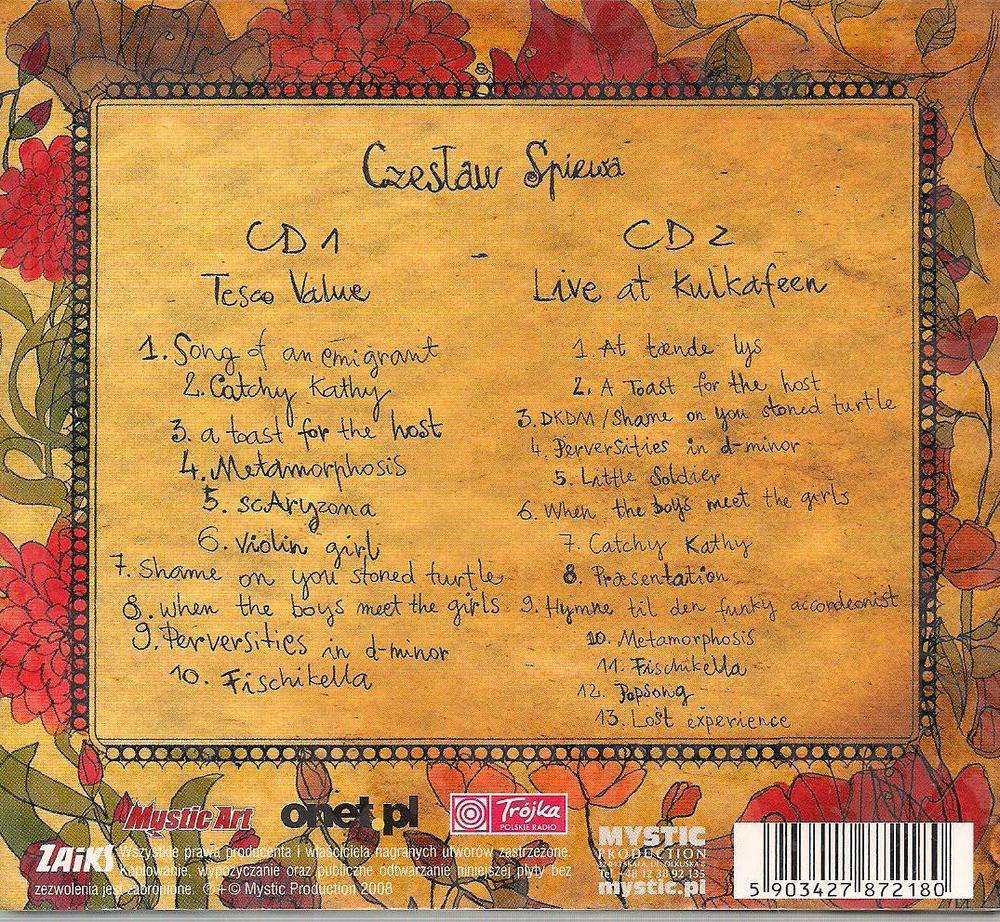 Czesław Śpiewa
CD 1 - CD 2
Tesco Value
Live at Kulkafeen
1. Song of an emigrant
2. Catchy Kathy
3. a toast for the host
4. Metamorphosis
5. scAryzona
6. Violin girl
7. Shame on you stoned turtle
8. when the boys meet the girls
9. Perversities in d-minor
10. Fischikella
1. At tænde lys
2. A Toast for the host
3. DKDM/Shame on you stoned turtle
4. Perversities in d-minor
5. Little Soldier
6. When the boys meet the girls
7. Catchy Kathy
8. Præsentation
9. Hymne til den funky accordeonist
10. Metamorphosis
11. Fischikella
12. PopSong
13. Lost experience
Mystic Art
onet.pl
Trójka
POLSKIE RADIO
ZAiKS
Wszystkie prawa producenta i właściciela nagranych utworów zastrzeżone.
Kopiowanie, wypożyczanie oraz publiczne odtwarzanie niniejszej płyty bez
zezwolenia jest zabronione. ℗+© Mystic Production 2008
MYSTIC
PRODUCTION
32-043 SKAŁA, UL. OLKUSKA
Tel +48 12 38 92 135
mystic.pl
5 903427 872180